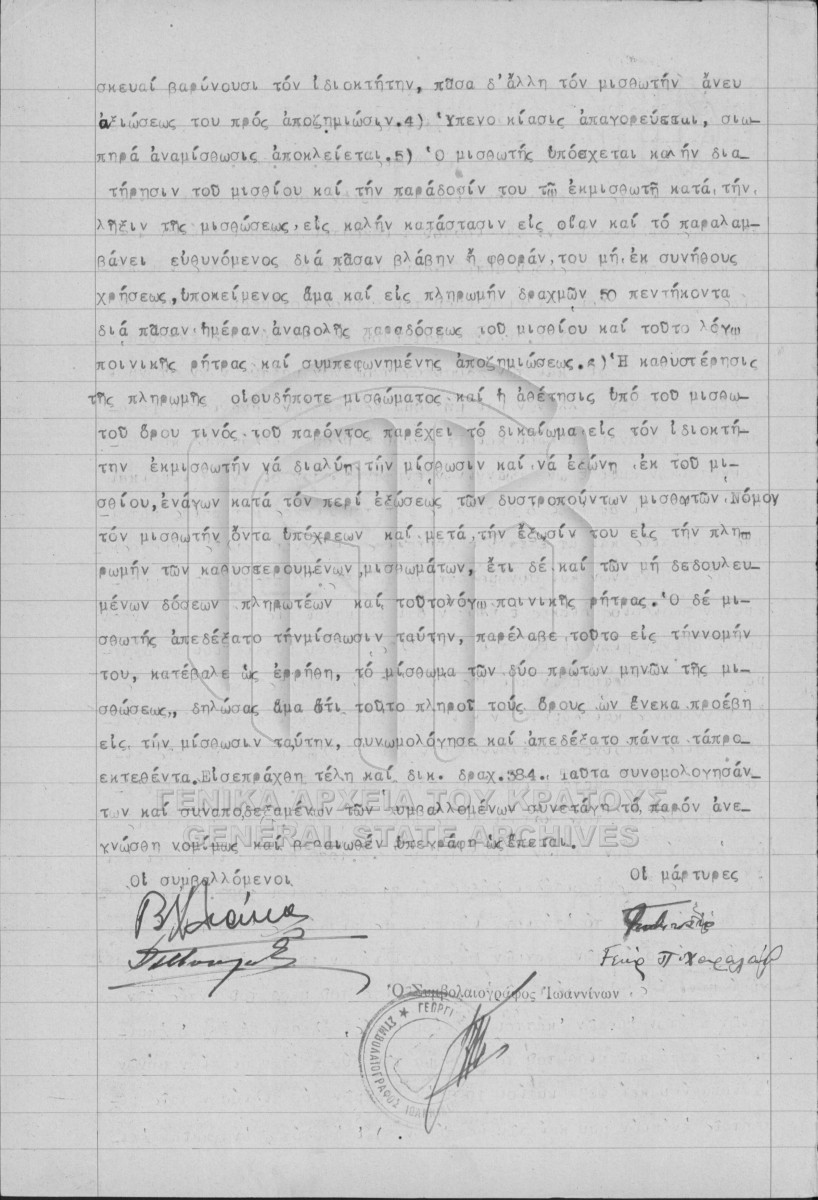 σκευαί βαρύνουσι τόν ἰδιοκτήτην, πᾶσα δ'ἄλλη τόν μισθωτήν ἄνευ
ἀξιώσεως του πρός ἀποζημιώσιν.4) Ὑπενοικίασις ἀπαγορεύεται, σιω-
πηρά ἀναμίσθωσις ἀποκλείεται.5) Ὁ μισθωτής ὑπόσχεται καλήν δια
τήρησιν τοῦ μισθίου καί τήν παράδοσίν του τῷ ἐκμισθωτῇ κατά τήν
λῆξιν τῆς μισθώσεως εἰς καλήν κατάστασιν εἰς οἵαν καί τό παραλαμ-
βάνει εὐθυνόμενος διά πᾶσαν βλάβην ἤ φθοράν του μή ἐκ συνήθους
χρήσεως, ὑποκείμενος ἅμα καί εἰς πληρωμήν δραχμῶν 50 πεντήκοντα
διά πᾶσαν ἡμέραν ἀναβολῆς παραδόσεως τοῦ μισθίου καί τοῦτο λόγῳ
ποινικῆς ρήτρας καί συμπεφωνημένης ἀποζημιώσεως.6) Ἡ καθυστέρησις
τῆς πληρωμῆς οἱουδήποτε μισθώματος καί ἡ ἀθέτησις ὑπό τοῦ μισθω-
τοῦ ὅρου τινός τοῦ παρόντος παρέχει τό δικαίωμα εἰς τόν ἰδιοκτή-
την ἐκμισθωτήν νά διαλύῃ τήν μίσθωσιν καί νά ἐξώνῃ ἐκ τοῦ μι-
σθίου, ἐνάγων κατά τόν περί ἐξώσεως τῶν δυστροπούντων μισθωτῶν Νόμον
τόν μισθωτήν ὄντα ὑπόχρεων καί μετά τήν ἔξωσίν του εἰς τήν πλη
ρωμήν τῶν καθυστερουμένων μισθωμάτων, ἔτι δέ καί τῶν μή δεδουλευ-
μένων δόσεων πληρωτέων καί τοῦτο λόγῳ ποινικῆς ρήτρας. Ὁ δέ μι-
σθωτής ἀπεδέξατο τήνμίσθωσιν ταύτην, παρέλαβε τοῦτο εἰς τήννομήν
του, κατέβαλε ὡς ἐρρήθη, τό μίσθωμα τῶν δύο πρώτων μηνῶν τῆς μι-
σθώσεως,, δηλώσας ἅμα ὅτι τοῦτο πληροῖ τούς ὅρους ὧν ἕνεκα προέβη
εἰς τήν μίσθωσιν ταύτην, συνωμολόγησε καί ἀπεδέξατο πάντα τάπρο-
εκτεθέντα. Εἰσεπράχθη τέλη καί δικ. δραχ.384. Ταῦτα συνομολογησάν-
των καί συναποδεξαμένων τῶν συμβαλλομένων συνετάγη τό παρόν ἀνε-
γνώσθη νομίμως καί βεβαιωθέν ὑπεγράφη ὡς ἕπεται.
ΓΕΝΙΚΑ ΑΡΧΕΙΑ ΤΟΥ ΚΡΑΤΟΥΣ
GENERAL STATE ARCHIVES
Οἱ συμβαλλόμενοι Οἱ μάρτυρες
Γεώρ Π. Χαραλάμ
Ὁ Συμβολαιογράφος Ἰωαννίνων
ΓΕΩΡΓΙ
ΣΥΜΒΟΛΑΙΟΓΡΑΦΟΣ ΙΩΑΝ